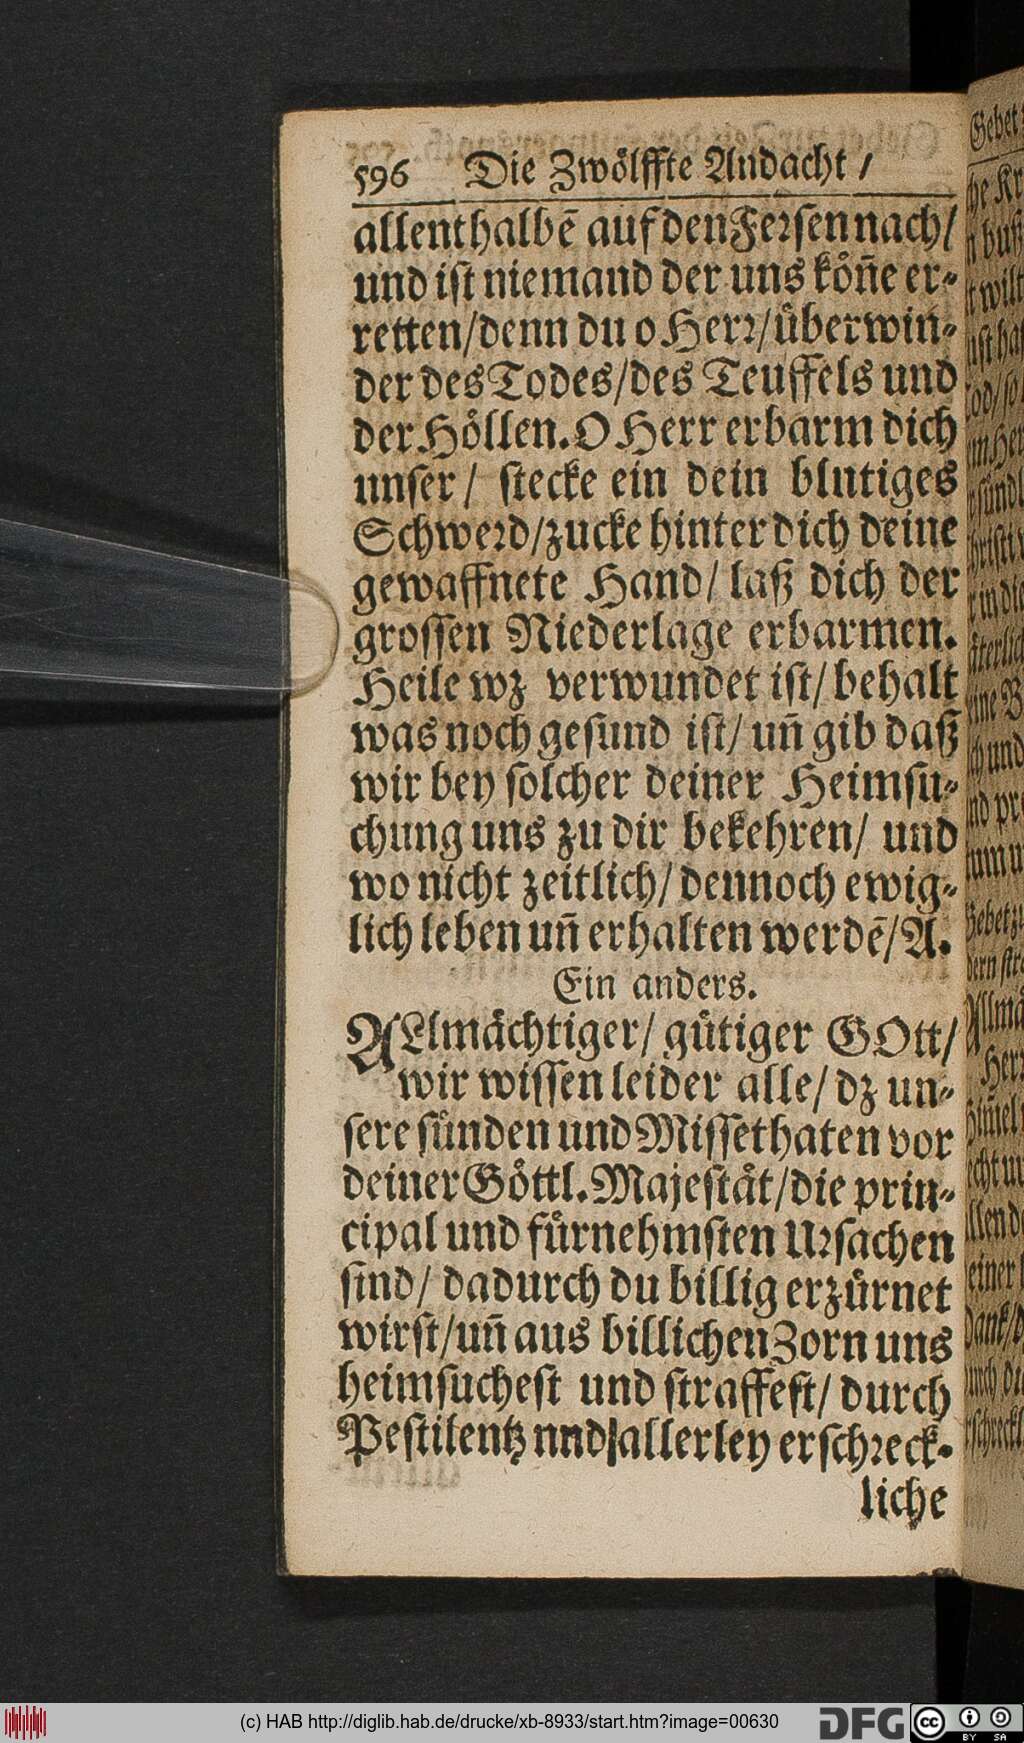 596 Die Zwölffte Andacht /
allenthalbē auf den Fersen nach/
und ist niemand der uns köñe er-
retten/denn du o Herr/überwin-
der des Todes/des Teuffels und
der Höllen. O Herr erbarm dich
unser / stecke ein dein blutiges
Schwerd/zucke hinter dich deine
gewaffnete Hand/ laß dich der
grossen Niederlage erbarmen.
Heile wz verwundet ist/ behalt
was noch gesund ist/ uñ gib daß
wir bey solcher deiner Heimsu-
chung uns zu dir bekehren/ und
wo nicht zeitlich/ dennoch ewig-
lich leben uñ erhalten werdē/A.
Ein anders.
ALlmächtiger/ gütiger GOtt/
wir wissen leider alle/ dz un-
sere sünden und Missethaten vor
deiner Göttl. Majestät/die prin-
cipal und fürnehmsten Ursachen
sind/ dadurch du billig erzürnet
wirst/uñ aus billichen Zorn uns
heimsuchest und straffest/ durch
Pestilentz nnd allerley erschreck-
liche
(c) HAB http://diglib.hab.de/drucke/xb-8933/start.htm?image=00630
DFG
cc BY SA